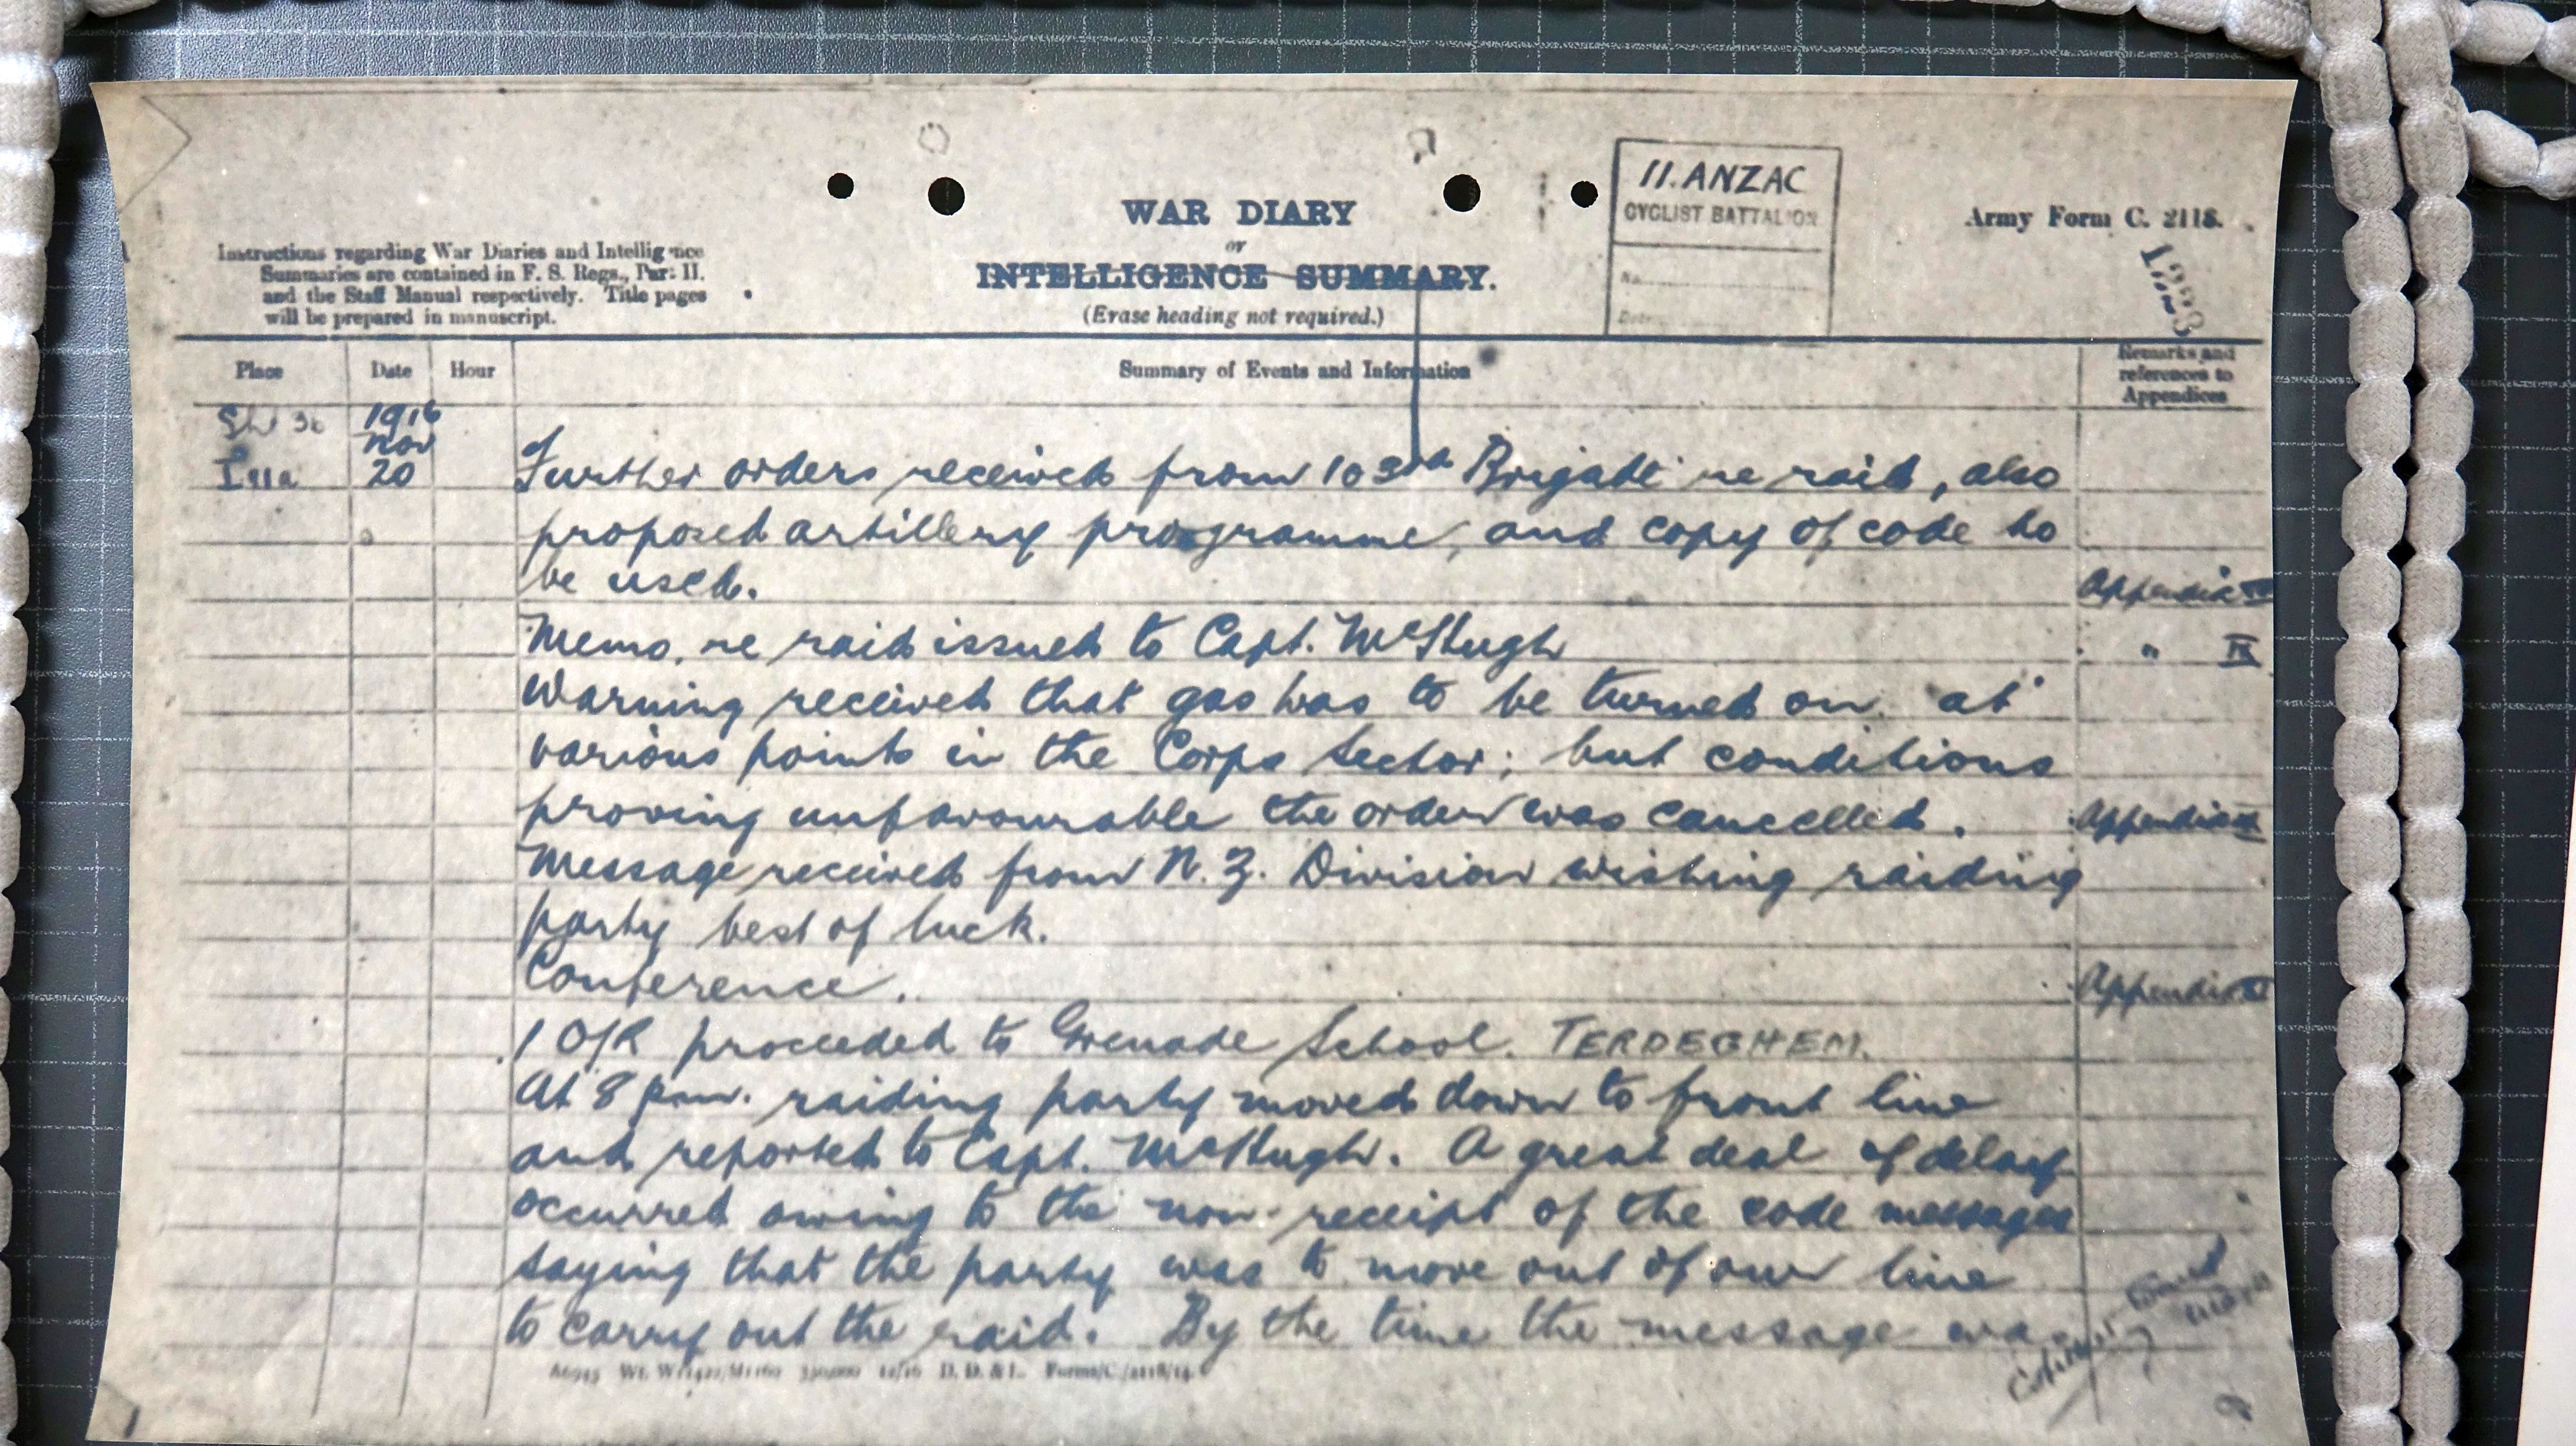 11. ANZAC
CYCLIST BATTALION
No.
Date
Army Form C. 2118.
WAR DIARY
or
INTELLIGENCE SUMMARY.
(Erase heading not required.)
Instructions regarding War Diaries and Intelligence
Summaries are contained in F. S. Regs., Part II.
and the Staff Manual respectively. Title pages
will be prepared in manuscript.
Place Date Hour Summary of Events and Information Remarks and
references to
Appendices
1916
Nov
20 Further orders received from 103rd Brigade re raid, also
proposed artillery programme, and copy of code to
be used. Appendix
Memo. re raid issued to Capt. McHugh " IX
Warning received that gas was to be turned on at
various points in the Corps Sector; but conditions
proving unfavourable the order was cancelled. Appendix
Message received from N.Z. Division wishing raiding
party best of luck.
Conference. Appendix
1 O/R proceeded to Grenade School. TERDEGHEM.
At 8 p.m. raiding party moved down to front line
and reported to Capt. McHugh. A great deal of delay
occurred owing to the non-receipt of the code messages
saying that the party was to move out of our line
to carry out the raid. By the time the message was
D. D. & L. Forms/C./2118/14.